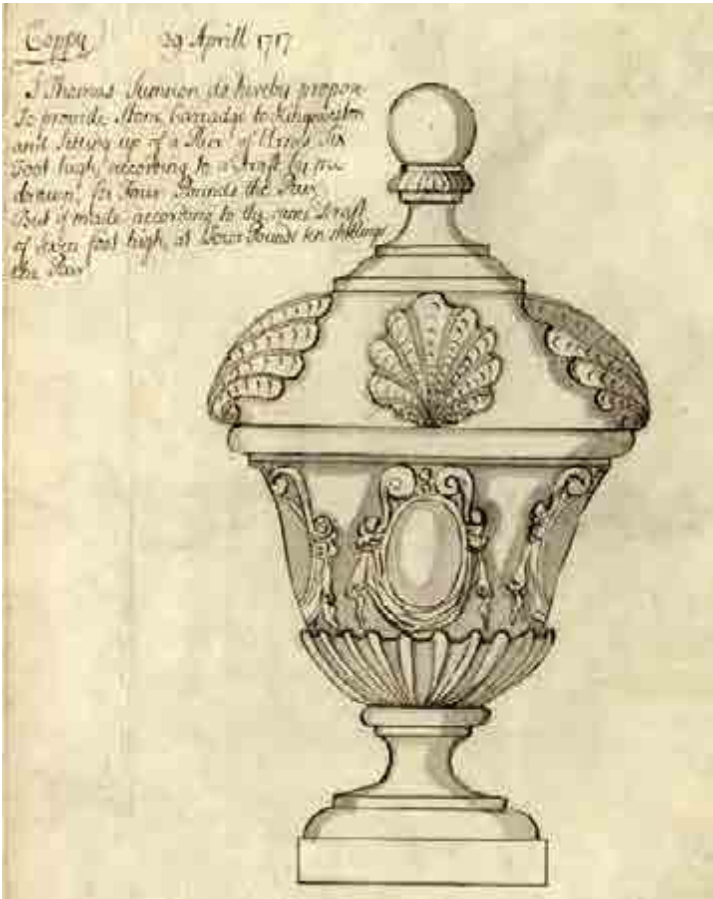 Coppy 29 Aprill 1717
I Thomas Sumsion do hereby propose
To provide Stone Carradge to Kingsweston
and Setting up of a Pair of Urns Six
Foot high, according to a Draft by me
drawn, for Four Pounds the Pair
But if made according to the same Draft
of seven foot high, at Four Pounds ten shillings
the Pair